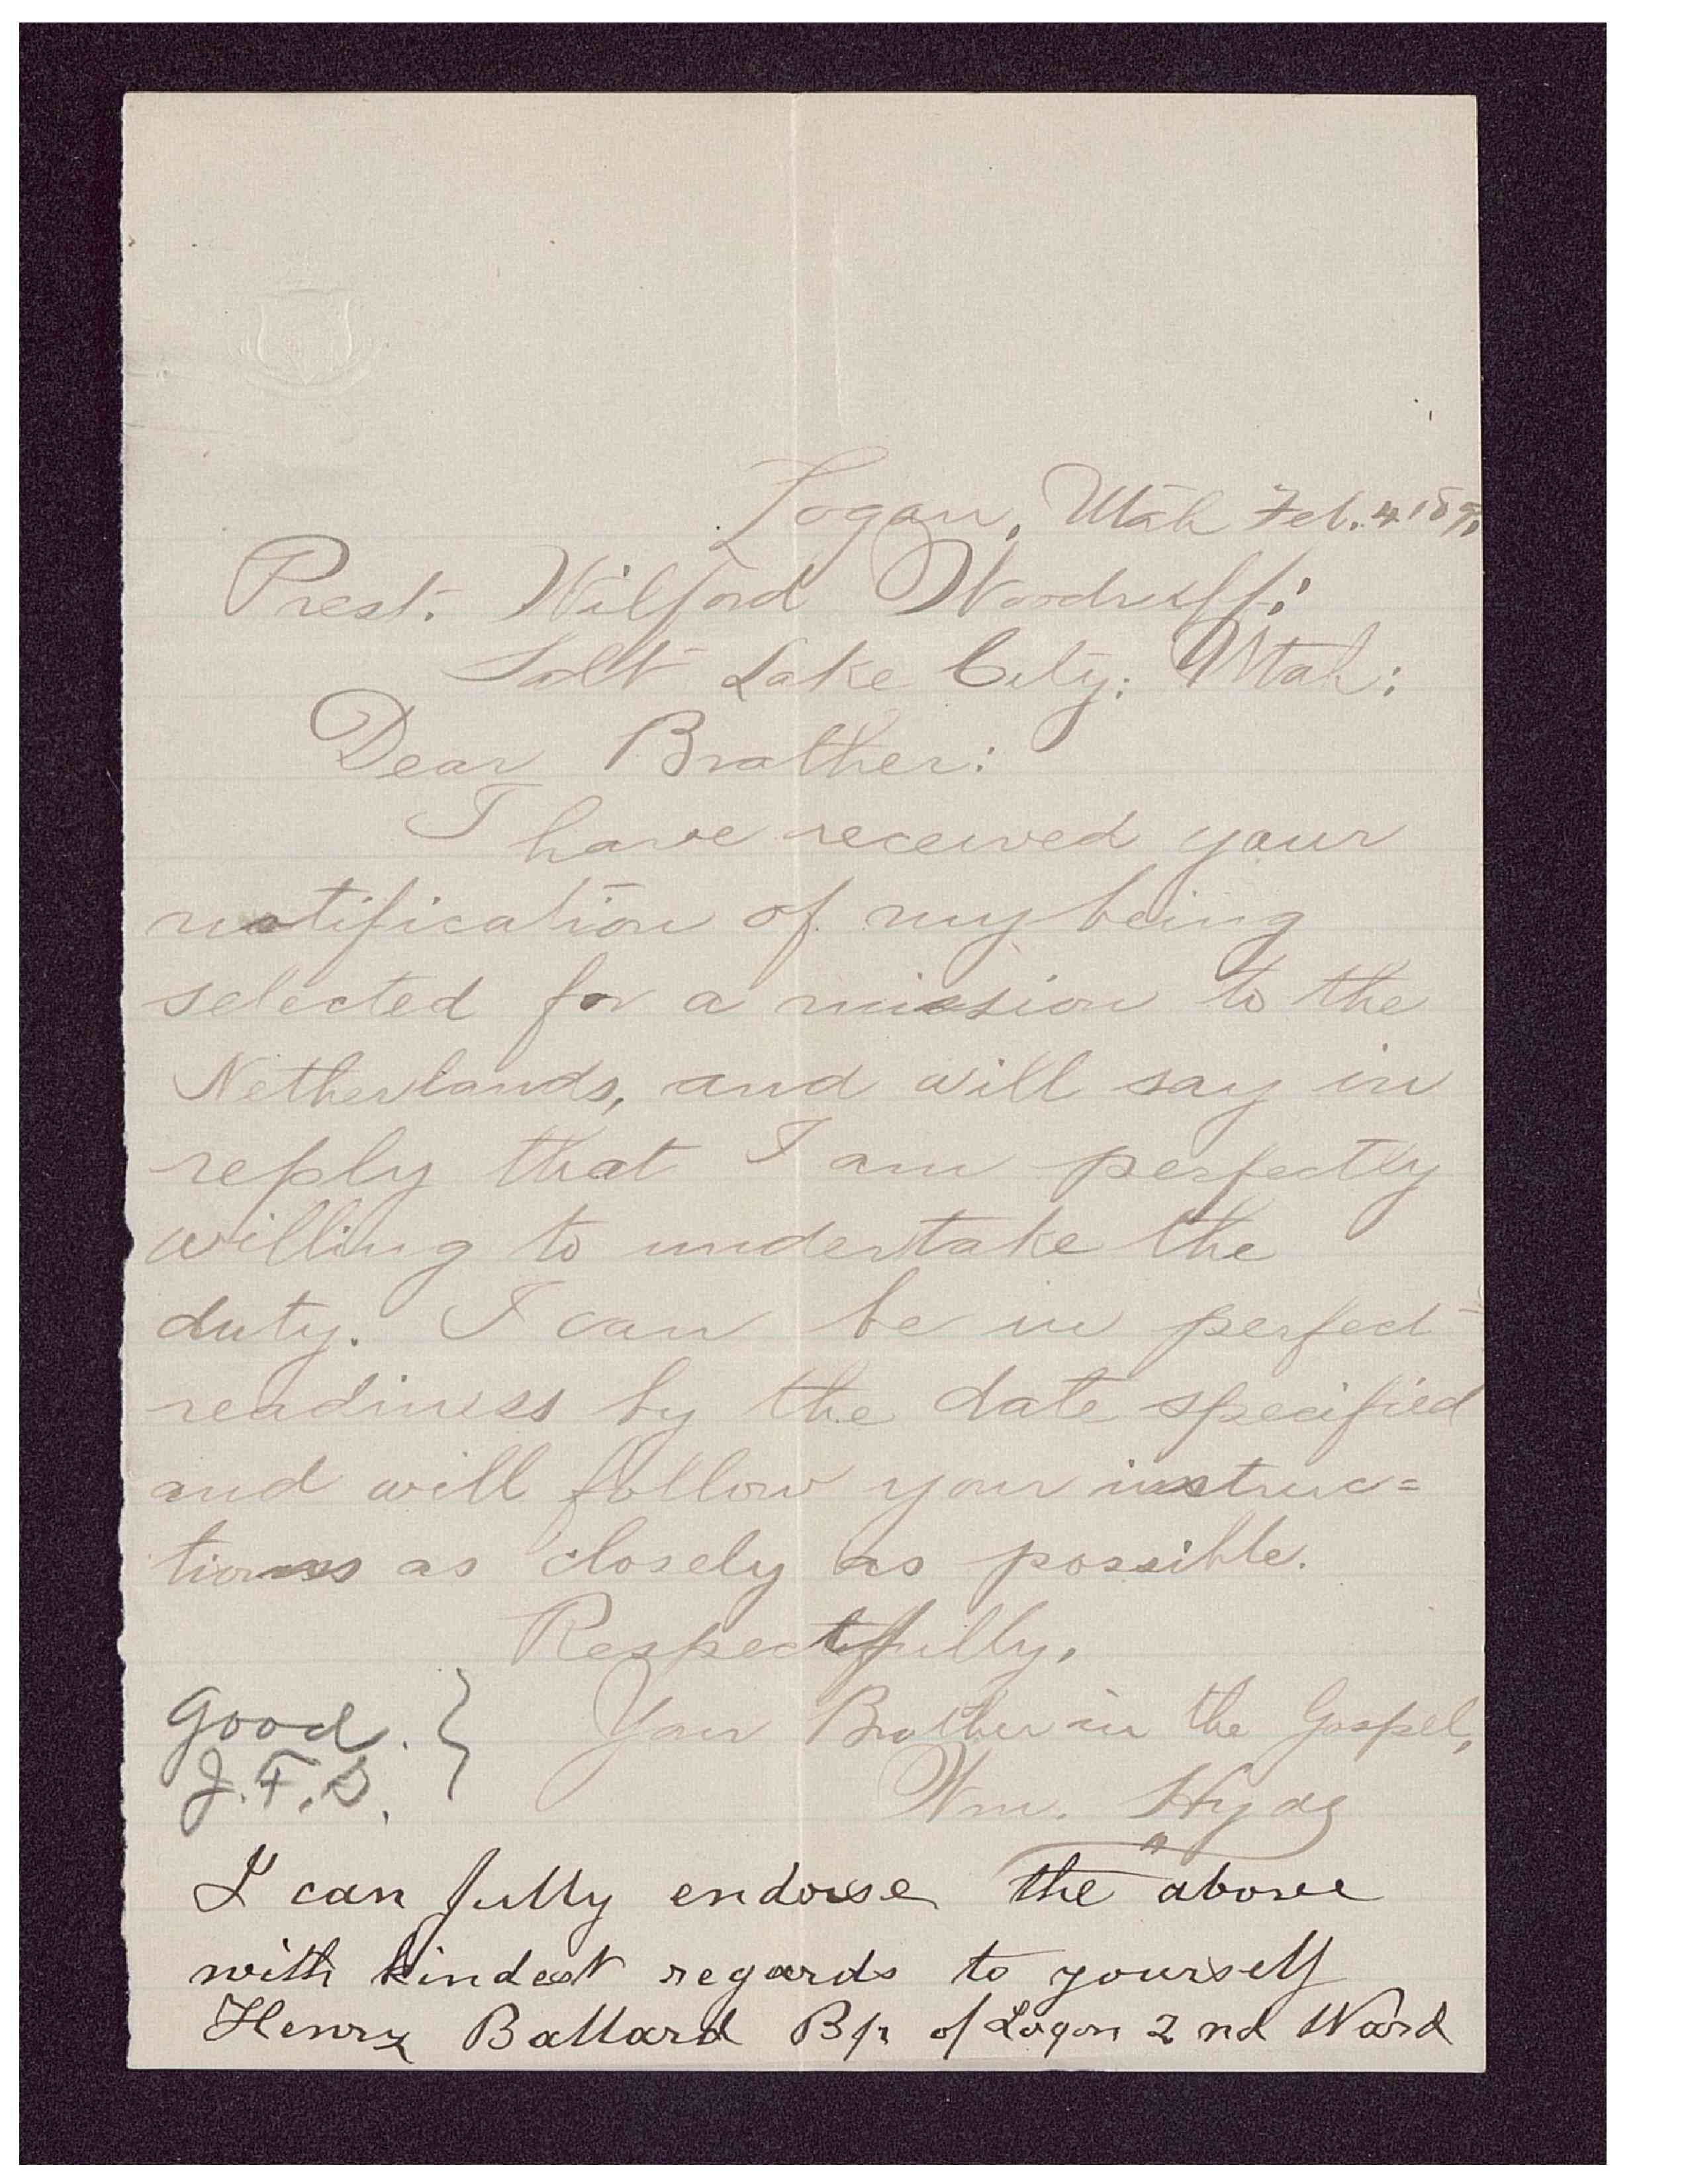 Logan, Utah Feb. 4 189
Prest. Wilford Woodruff:
Salt Lake City; Utah:
Dear Brother:
I have received your
notification of my being
selected for a mission to the
Netherlands, and will say in
reply that I am perfectly
willing to undertake the
duty. I can be in perfect
readiness by the date specified
and will follow your instruc=
tions as closely as possible.
Respectfully,
Your Brother in the Gospel,
Wm. Hyde
Good.
J.F.S.
I can fully endorse the above
with kindest regards to yourself
Henry Ballard Bp of Logan 2nd Ward